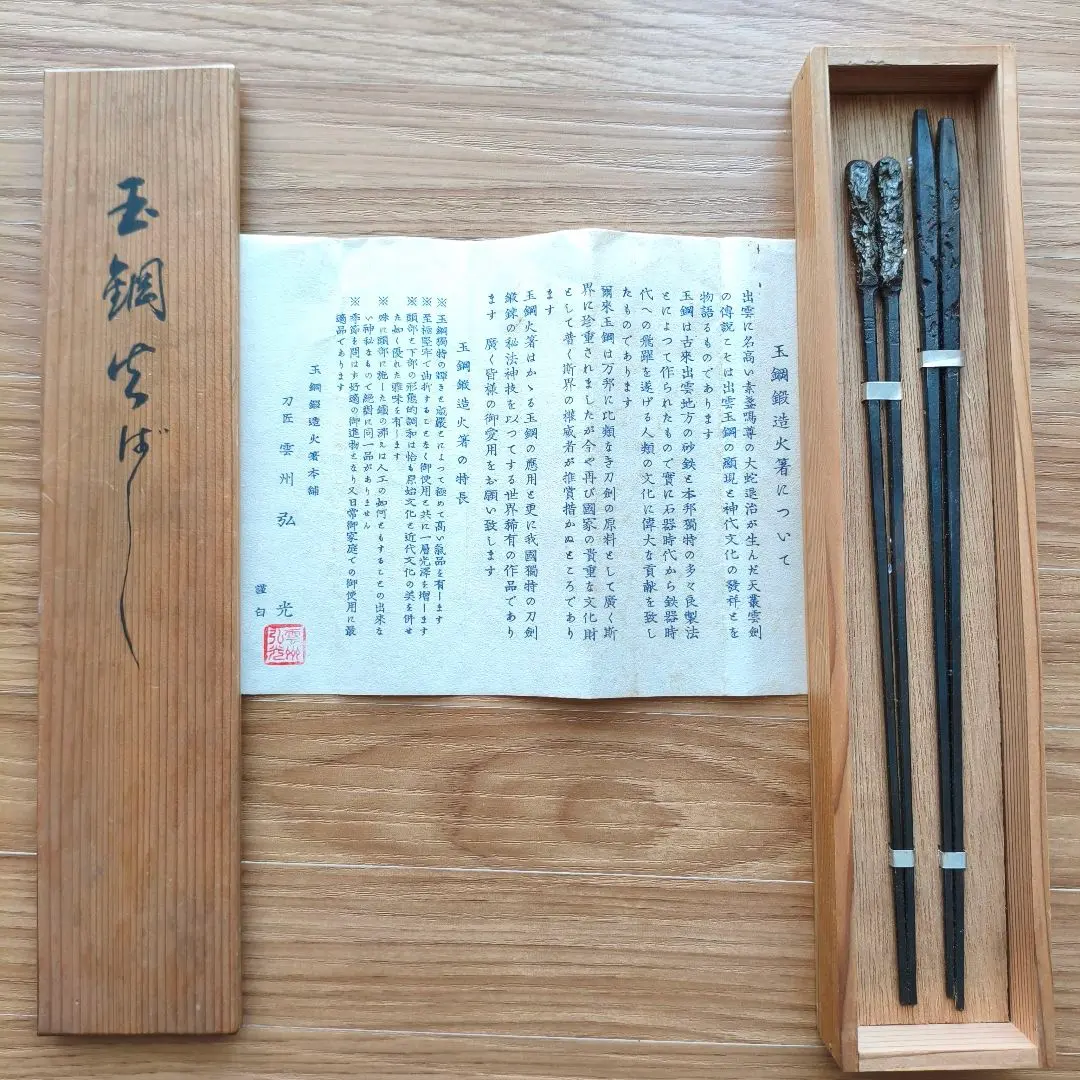 玉鋼火ばし
玉鋼鍛造火箸について
出雲に名高い素盞嗚尊の大蛇退治が生んだ天叢雲劍
の傳説こそは出雲玉鋼の顕現と神代文化の發祥とを
物語るものであります
玉鋼は古來出雲地方の砂鉄と本邦獨特の多々良製法
とによつて作られたもので實に石器時代から鉄器時
代への飛躍を遂げる人類の文化に偉大な貢献を致し
たものであります
爾來玉鋼は万邦に比類なき刀劍の原料として廣く斯
界に珍重されましたが今や再び國家の貴重な文化財
として普く斯界の権威者が推賞措かぬところであり
ます
玉鋼火箸はかゝる玉鋼の應用と更に我國獨特の刀劍
鍛錬の秘法神技を以つてする世界稀有の作品であり
ます 廣く皆様の御愛用をお願い致します
玉鋼鍛造火箸の特長
※玉鋼獨特の輝きと威嚴とによつて極めて高い氣品を有します
※至極堅牢で曲折することなく御使用と共に一層光澤を増します
※頭部と下部の形態的調和は恰も原始文化と近代文化の美を併せ
た如く優れた雅味を有します
※殊に頭部に施した鐵の冴えは人工の如何ともすることの出來な
い神秘なもので絶對に同一品がありません
※季節を問はず好適の御進物となり又日常御家庭での御使用に最
適品であります
玉鋼鍛造火箸本舗
刀匠 雲州 弘光
謹白
雲州弘光